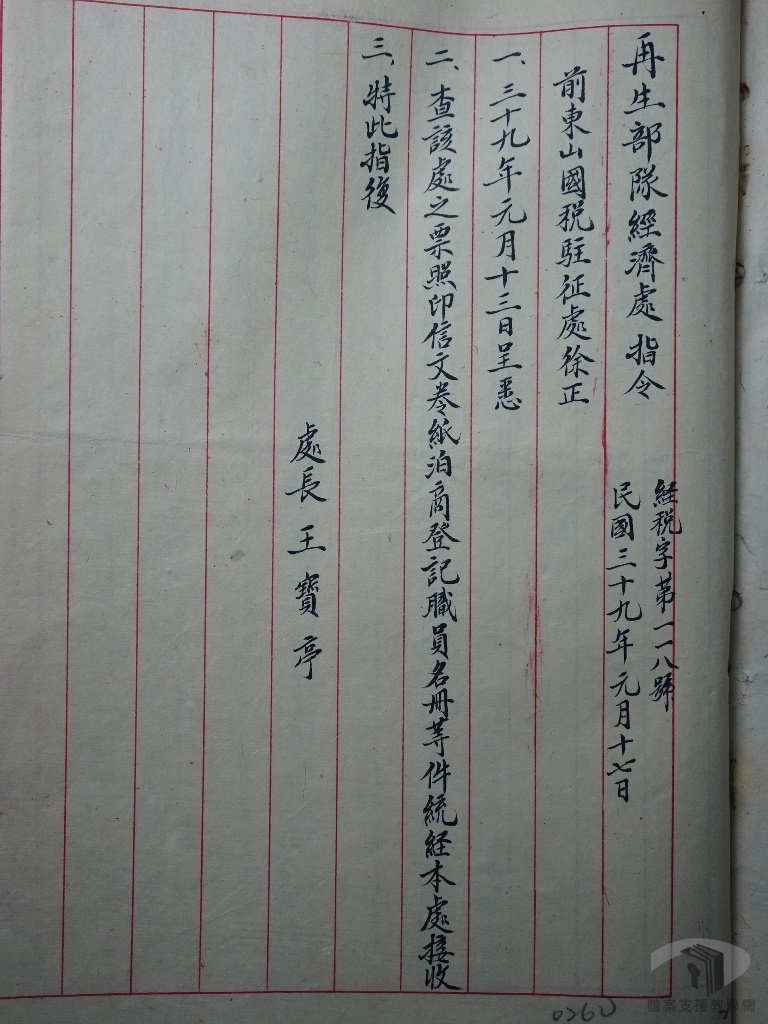 再生部隊經濟處 指令
經税字第一一八號
民國三十九年元月十七日
前東山國税駐征處徐正
一、三十九年元月十三日呈悉
二、查該處之票照印信文卷紙泊商登記職員名冊等件統経本處接收
三、特此指復
處長 王寶亭
0260
檔案支援教學網